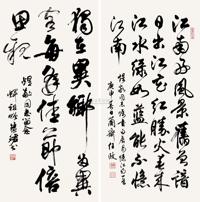 江南好風景舊曾諳
日出江花紅勝火春來
江水綠如藍能不憶
江南
獨在異鄉為異
客每逢佳節倍
思親